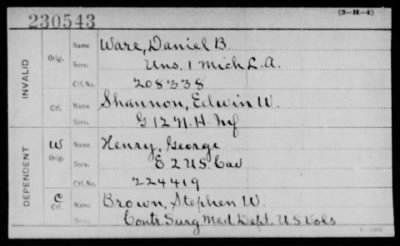 (3-H-4)
230543
INVALID
Orig.
Name Ware, Daniel B.
Serv. Uns. 1 Mich L. A.
Ctf. No. 208338
Ctf.
Name Shannon, Edwin W.
Serv. G 127 N.H. Inf
DEPENDENT
W Orig.
Name Henry, George
Serv. E 2 U.S. Cav
Ctf. No. 224419
C Ctf.
Name Brown, Stephen W.
Serv. Contr Surg Med Dept. U.S Vols